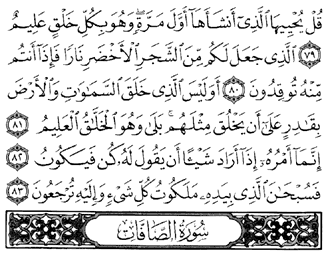 قُلْ يُحْيِيهَا ٱلَّذِىٓ أَنشَأَهَآ أَوَّلَ مَرَّةٍ وَهُوَ بِكُلِّ خَلْقٍ عَلِيمٌ
٧٩ ٱلَّذِى جَعَلَ لَكُم مِّنَ ٱلشَّجَرِ ٱلْأَخْضَرِ نَارًا فَإِذَآ أَنتُم
مِّنْهُ تُوقِدُونَ ٨٠ أَوَلَيْسَ ٱلَّذِى خَلَقَ ٱلسَّمَٰوَٰتِ وَٱلْأَرْضَ
بِقَٰدِرٍ عَلَىٰٓ أَن يَخْلُقَ مِثْلَهُم ۚ بَلَىٰ وَهُوَ ٱلْخَلَّٰقُ ٱلْعَلِيمُ ٨١
إِنَّمَآ أَمْرُهُۥٓ إِذَآ أَرَادَ شَيْـًٔا أَن يَقُولَ لَهُۥ كُن فَيَكُونُ ٨٢
فَسُبْحَٰنَ ٱلَّذِى بِيَدِهِۦ مَلَكُوتُ كُلِّ شَىْءٍ وَإِلَيْهِ تُرْجَعُونَ ٨٣
سُورَةُ الصَّافَّاتِ